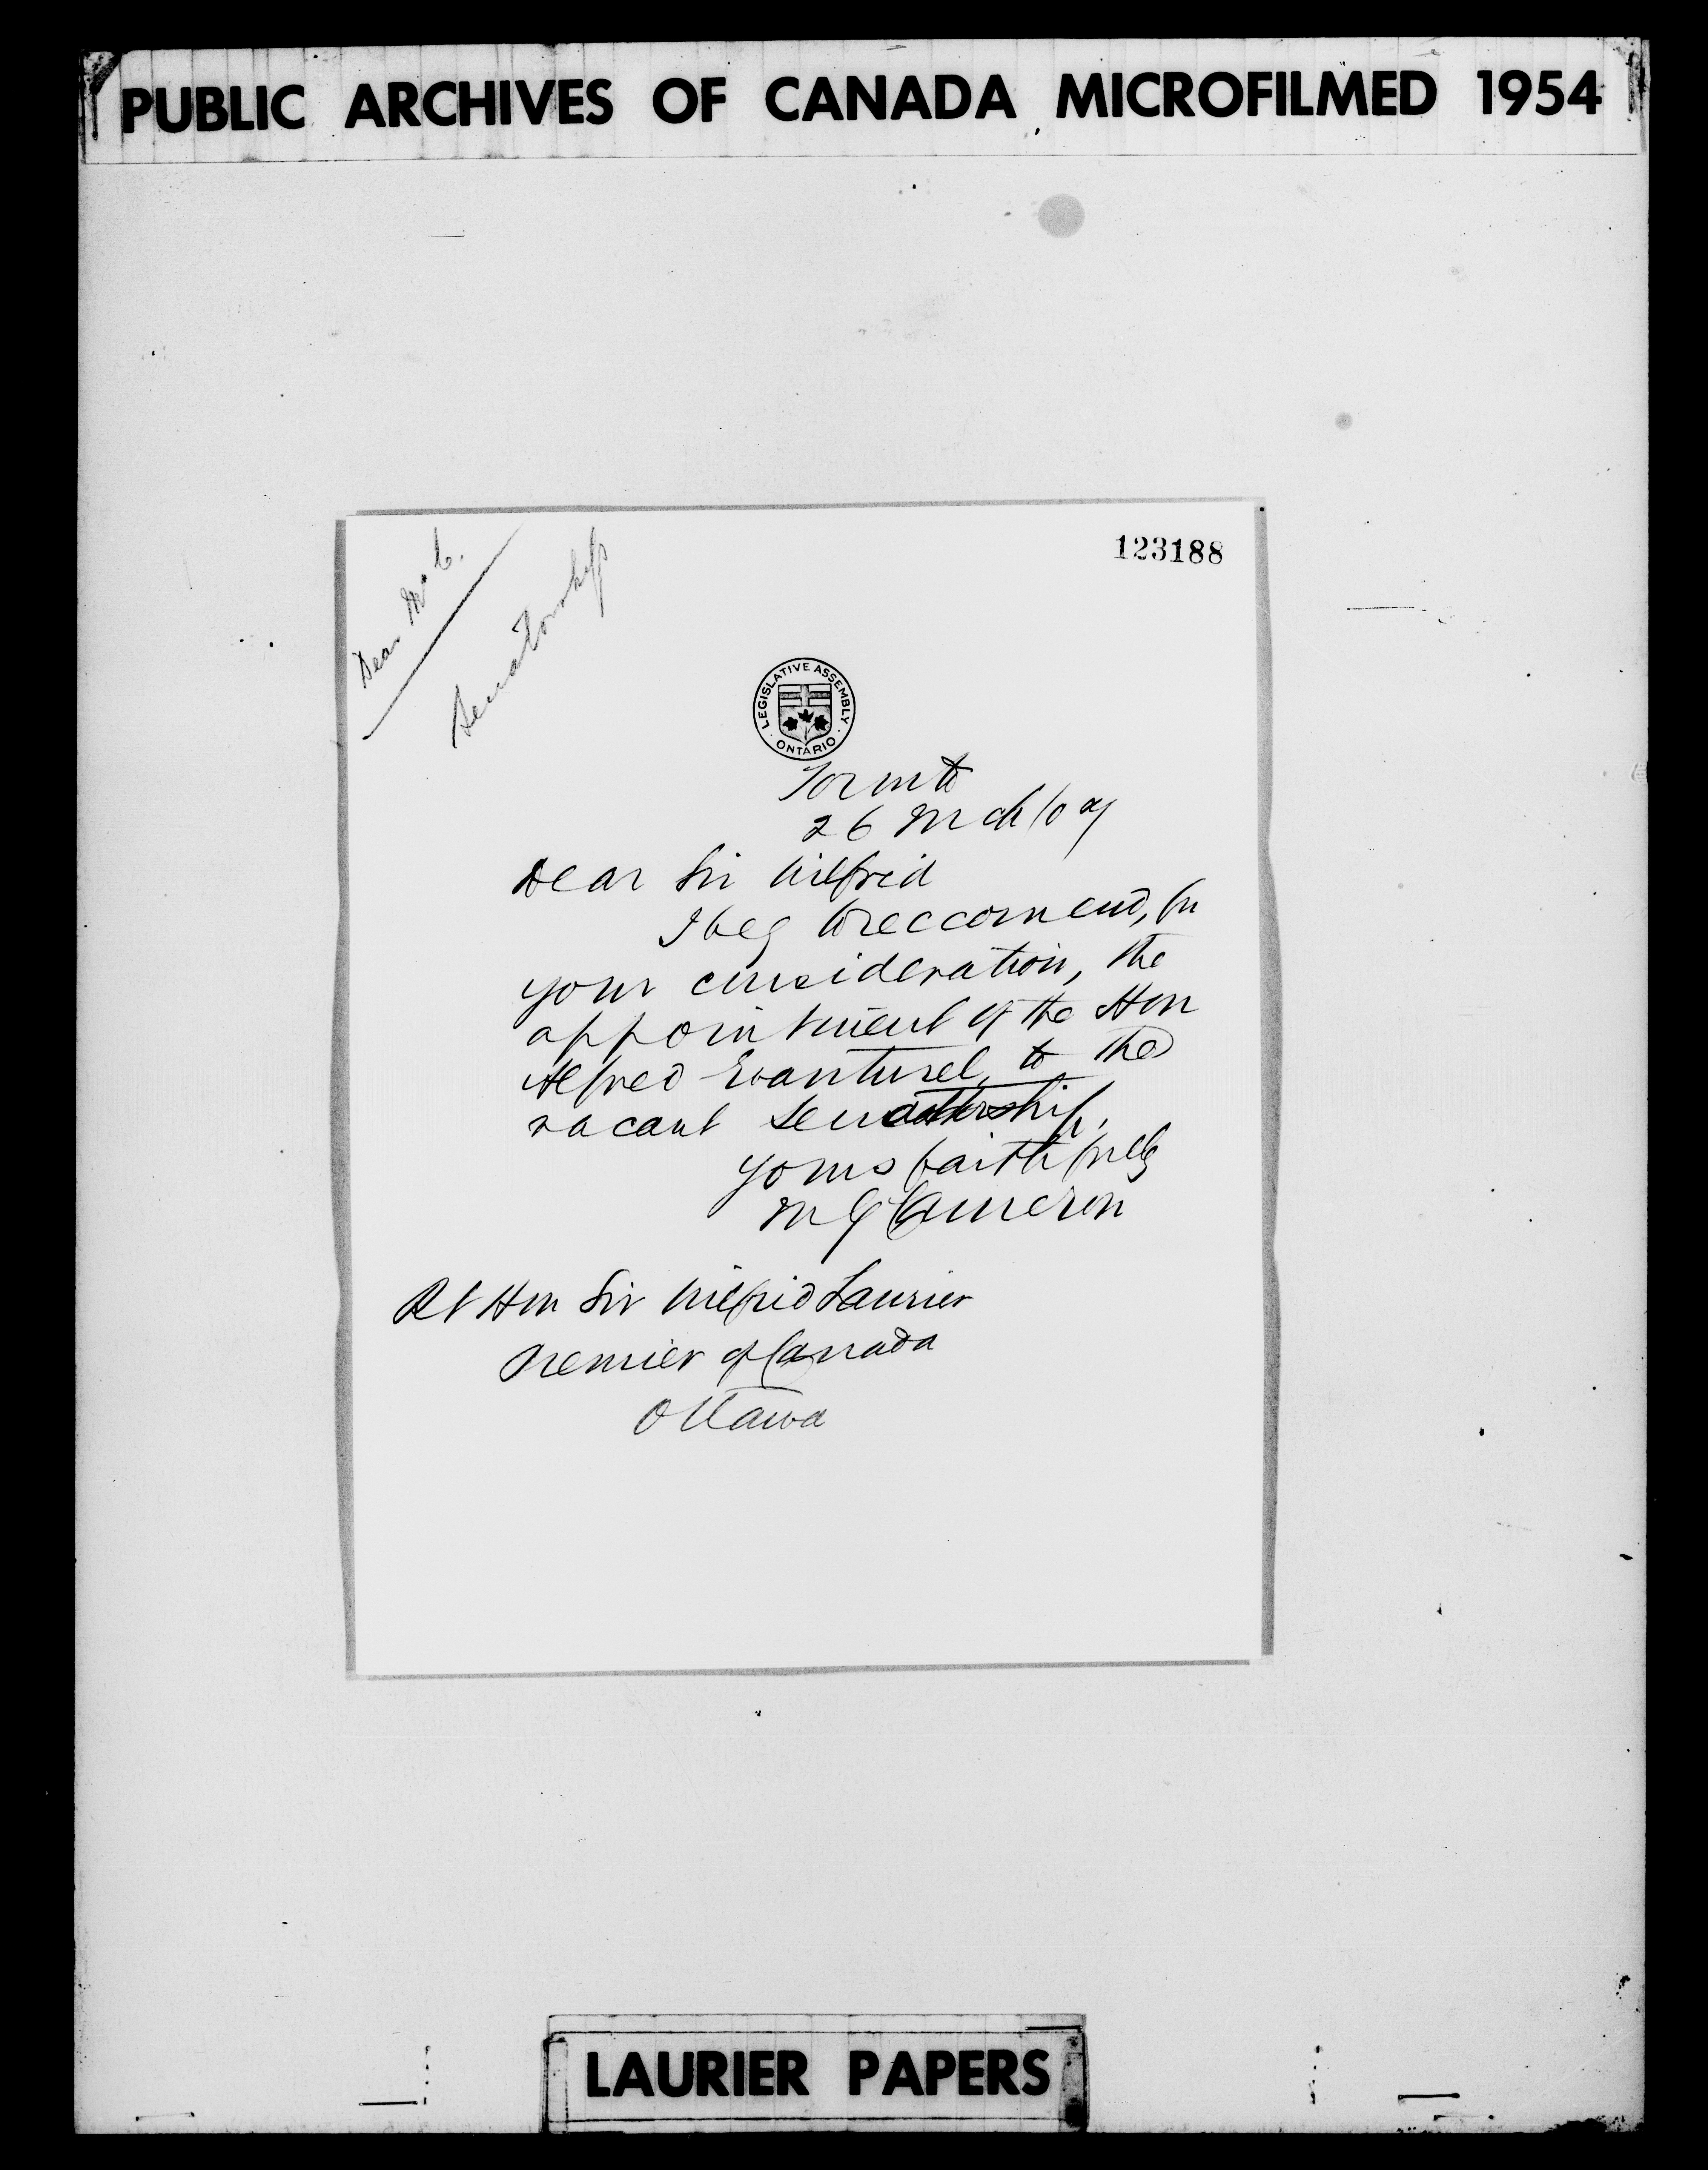 PUBLIC ARCHIVES OF CANADA MICROFILMED 1954
123188
Dear Mr C.
Senatorship
LEGISLATIVE ASSEMBLY
ONTARIO
Toronto
26 Mch
Dear Sir Wilfrid
I beg to reccomend, for
your consideration, the
appointment of the Hon
Alfred Evanturel, to the
vacant Senatorship.
Yours faithfully
M G Cameron
Rt Hon Sir Wilfrid Laurier
Premier of Canada
Ottawa
LAURIER PAPERS